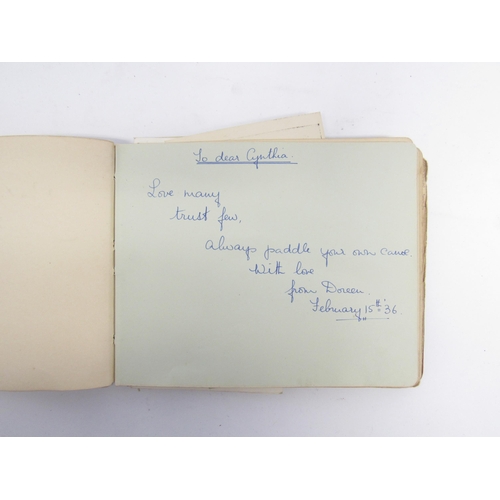 To dear Cynthia
Love many
trust few,
Always paddle your own canoe.
With love
from Doreen.
February 15th '36.